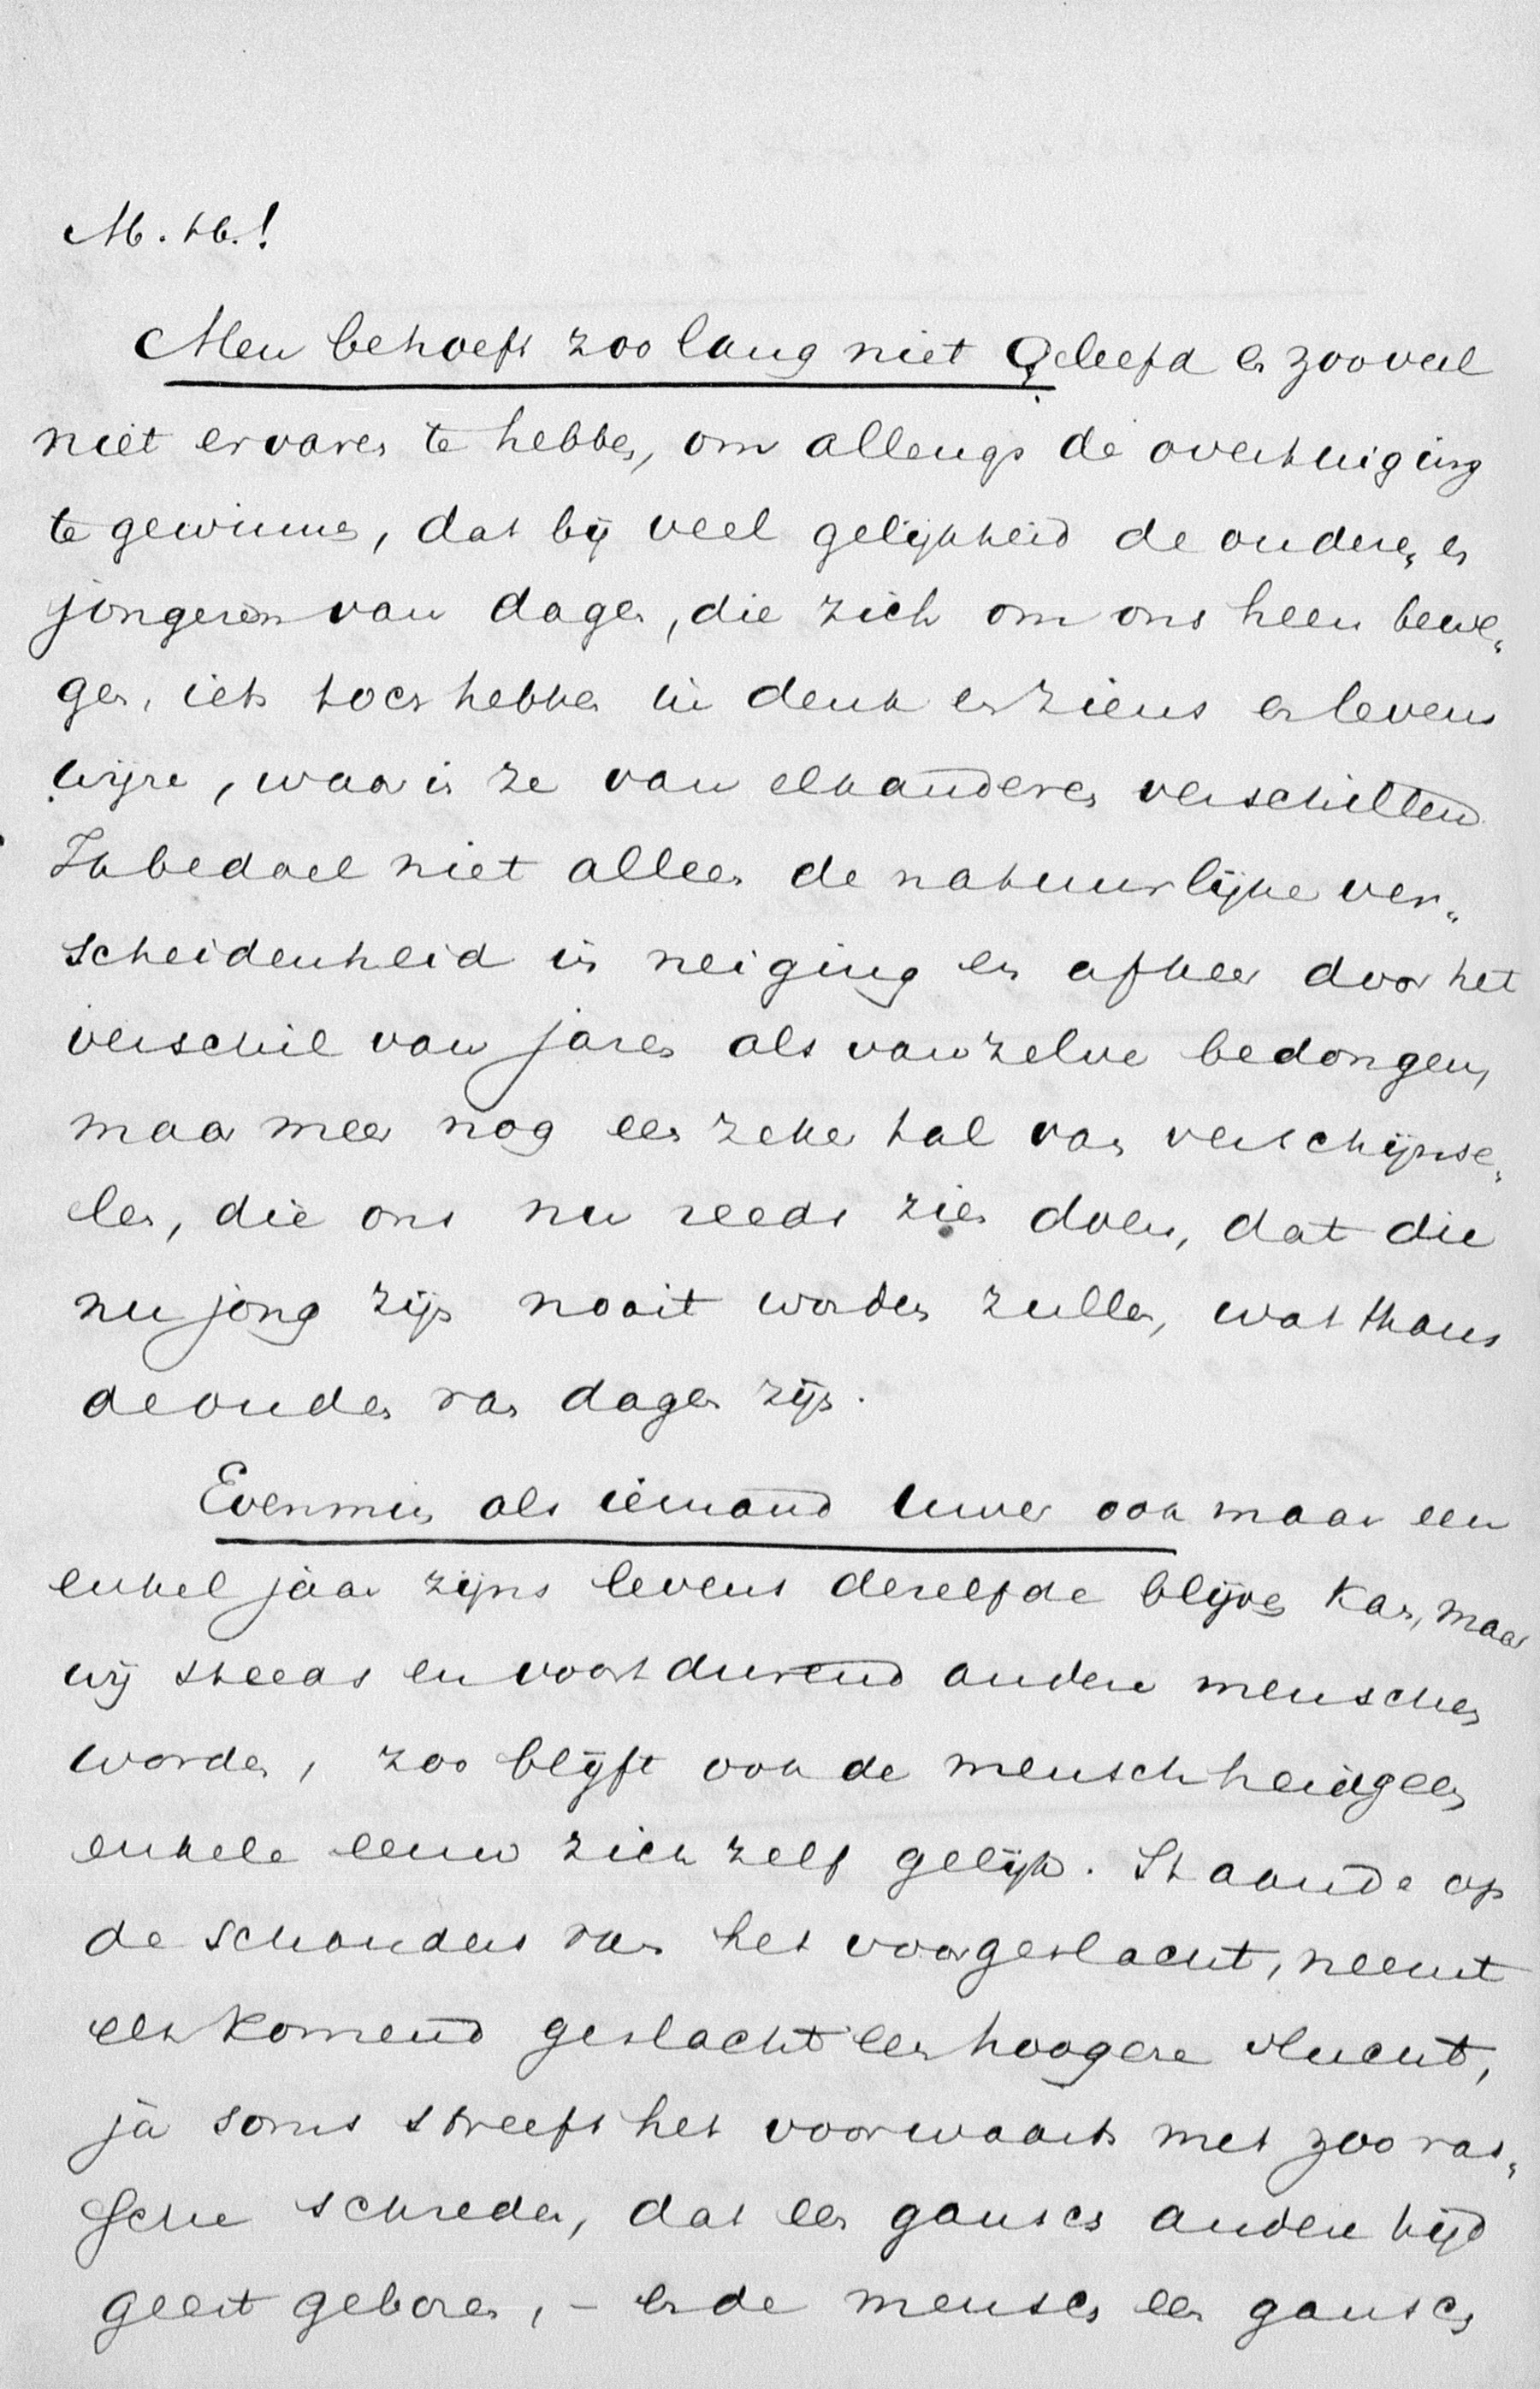 M. H.!
Men behoeft zoo lang niet geleefd en zooveel
niet ervaren te hebben, om allengs de overtuiging
te gewinnen, dat bij veel gelijkheid de ouderen en
jongeren van dagen, die zich om ons heen bewe„
gen, iets toch hebben in denk en ziens en levens
wijze, waarin ze van elkanderen verschillend.
Ik bedoel niet alleen de natuurlijke ver„
scheidenheid in neiging en afkeer door het
verschil van jaren als vanzelve bedongen,
maar meer nog een zeker tal van verschijnse„
len, die ons nu reeds zien doen, dat die
nu jong zijn nooit worden zullen, wat thans
de ouden van dagen zijn.
Evenmin als iemand uwer ook maar een
enkel jaar zijns levens dezelfde blijven kan, maar
wij steeds en voortdurend andere menschen
worden, zoo blijft ook de menschheid geen
enkele eeuw zich zelf gelijk. Staande op
de schouders van het voorgeslacht, neemt
elk komend geslacht een hoogere vlucht,
ja soms streeft het voorwaarts met zoo ras„
sche schreden, dat een gansch andere tijd
geest geboren, – en de mensch een gansch